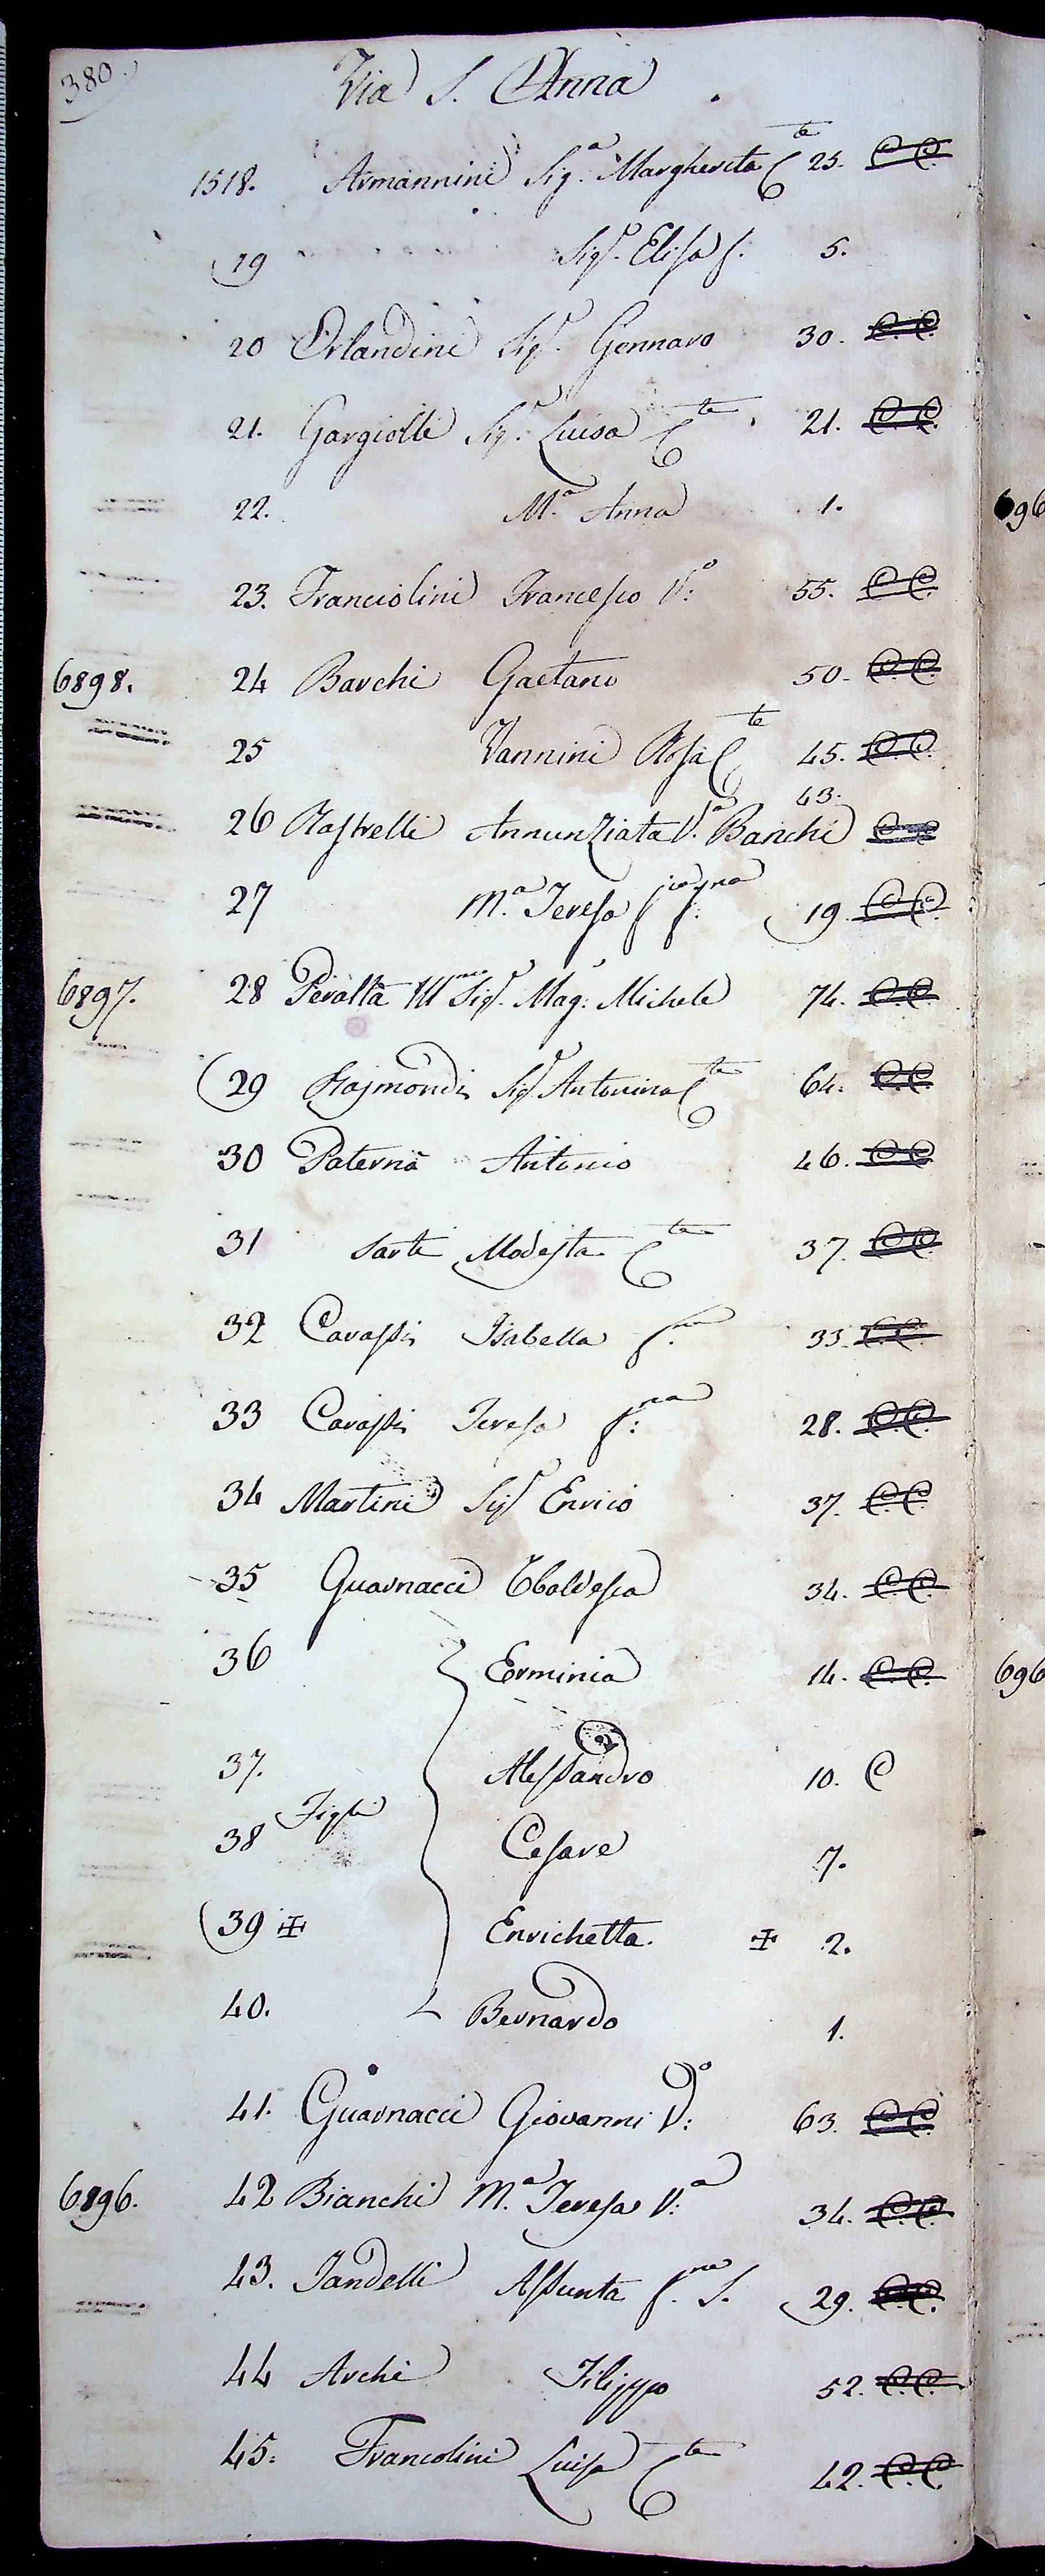 380.
Via S. Anna
1518. Armannini Sig.ª Margherita C.te 25. C C
19 Sig.ª Elisa f. 5.
20 Orlandini Sig.r Gennaro 30. C C
21. Gargiolli Sig.ª Luisa C.te 21. C C
22. M.ª Anna 1.
23. Franciolini Francesco V.º 55. C C
6898. 24 Barchi Gaetano 50. C C
25 Vannini Rosa C.te 45. C C
43.
26 Rastrelli Annunziata V.ª Banchi C C
27 M.ª Teresa 19 C C
6897. 28 Peralta Ill.mo Sig.r Mag. Michele 74. C C
29 Rajmondi Sig.ª Antonina C.te 64. C C
30 Paternà Antonio 46. C C
31 Sarti Modesta C.te 37. C C
32 Carassi Isabella f. 33. C C
33 Carassi Teresa f.na 28. C C
34 Martini Sig.r Enrico 37. C C
35 Guarnacci Ubaldesca 34. C C
36 Erminia 14. C C
37. Alessandro 10. C
Figli
38 Cesare 7.
39 ✠ Enrichetta. ✠ 2.
40. Bernardo 1.
41. Guarnacci Giovanni V.º 63. C C
6896. 42 Bianchi M.ª Teresa V.ª 34. C C
43. Jandelli Assunta f. S. 29. C C
44 Archi Filippo 52. C C
45. Francolini Luisa C.te 42. C C